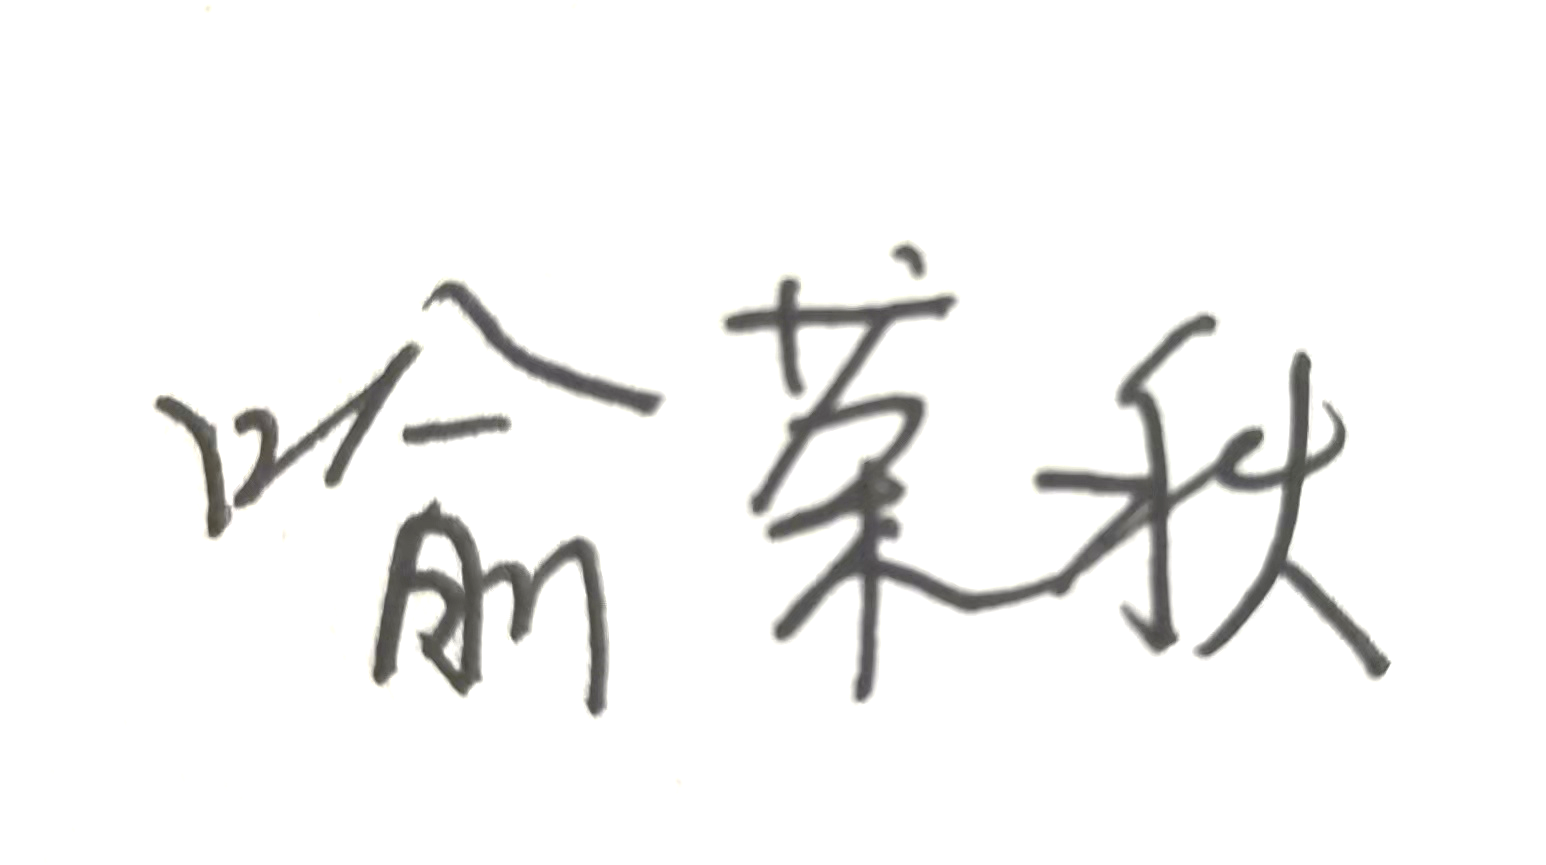 喻荣秋